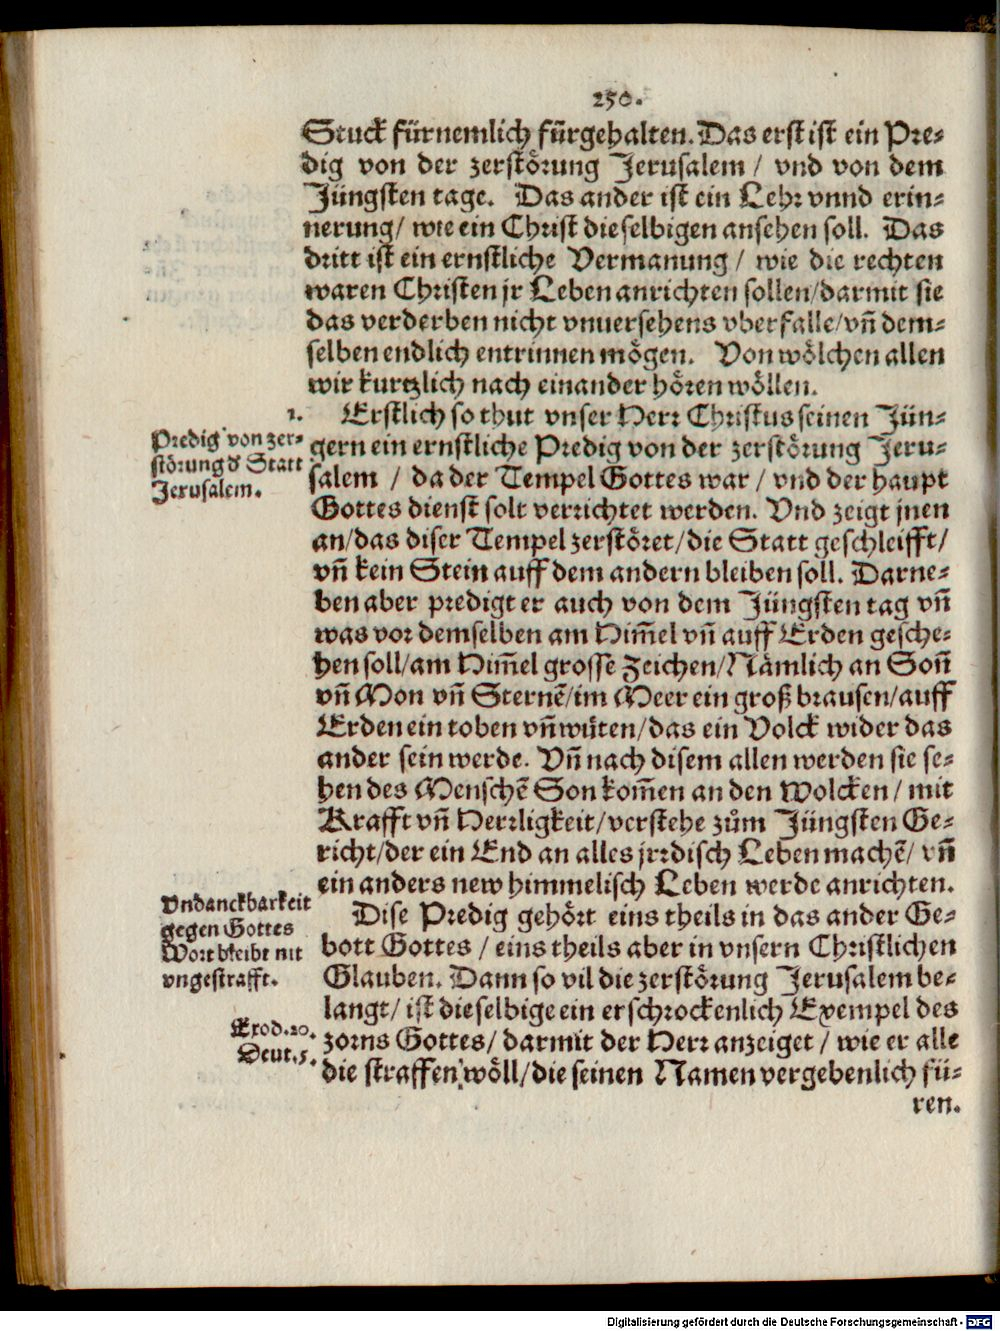 250.
Stuck fürnemlich fürgehalten. Das erst ist ein Pre-
dig von der zerstörung Jerusalem / vnd von dem
Jüngsten tage. Das ander ist ein Lehr vnnd erin-
nerung / wie ein Christ dieselbigen ansehen soll. Das
dritt ist ein ernstliche Vermanung / wie die rechten
waren Christen jr Leben anrichten sollen / darmit sie
das verderben nicht vnuersehens vberfalle / vñ dem-
selben endlich entrinnen mögen. Von wölchen allen
wir kurtzlich nach einander hören wöllen.
1.
Predig von zer-
störung d̕ Statt
Jerusalem.
Erstlich so thut vnser Herr Christus seinen Jün-
gern ein ernstliche Predig von der zerstörung Jeru-
salem / da der Tempel Gottes war / vnd der haupt
Gottes dienst solt verrichtet werden. Vnd zeigt jnen
an / das diser Tempel zerstöret / die Statt geschleifft /
vñ kein Stein auff dem andern bleiben soll. Darne-
ben aber predigt er auch von dem Jüngsten tag vñ
was vor demselben am Him̃el vñ auff Erden gesche-
hen soll / am Him̃el grosse Zeichen / Nämlich an Soñ
vñ Mon vñ Sternẽ / im Meer ein groß brausen / auff
Erden ein toben vñ wüten / das ein Volck wider das
ander sein werde. Vñ nach disem allen werden sie se-
hen des Menschẽ Son kom̃en an den Wolcken / mit
Krafft vñ Herrligkeit / verstehe zům Jüngsten Ge-
richt / der ein End an alles jrrdisch Leben machẽ / vñ
ein anders new himmelisch Leben werde anrichten.
Vndanckbarkeit
gegen Gottes
Wort bleibt nit
vngestrafft.
Dise Predig gehört eins theils in das ander Ge-
bott Gottes / eins theils aber in vnsern Christlichen
Glauben. Dann so vil die zerstörung Jerusalem be-
langt / ist dieselbige ein erschrockenlich Exempel des
Exod. 20.
Deut. 5.
zorns Gottes / darmit der Herr anzeiget / wie er alle
die straffen wöll / die seinen Namen vergebenlich fü-
ren.
Digitalisierung gefördert durch die Deutsche Forschungsgemeinschaft - DFG